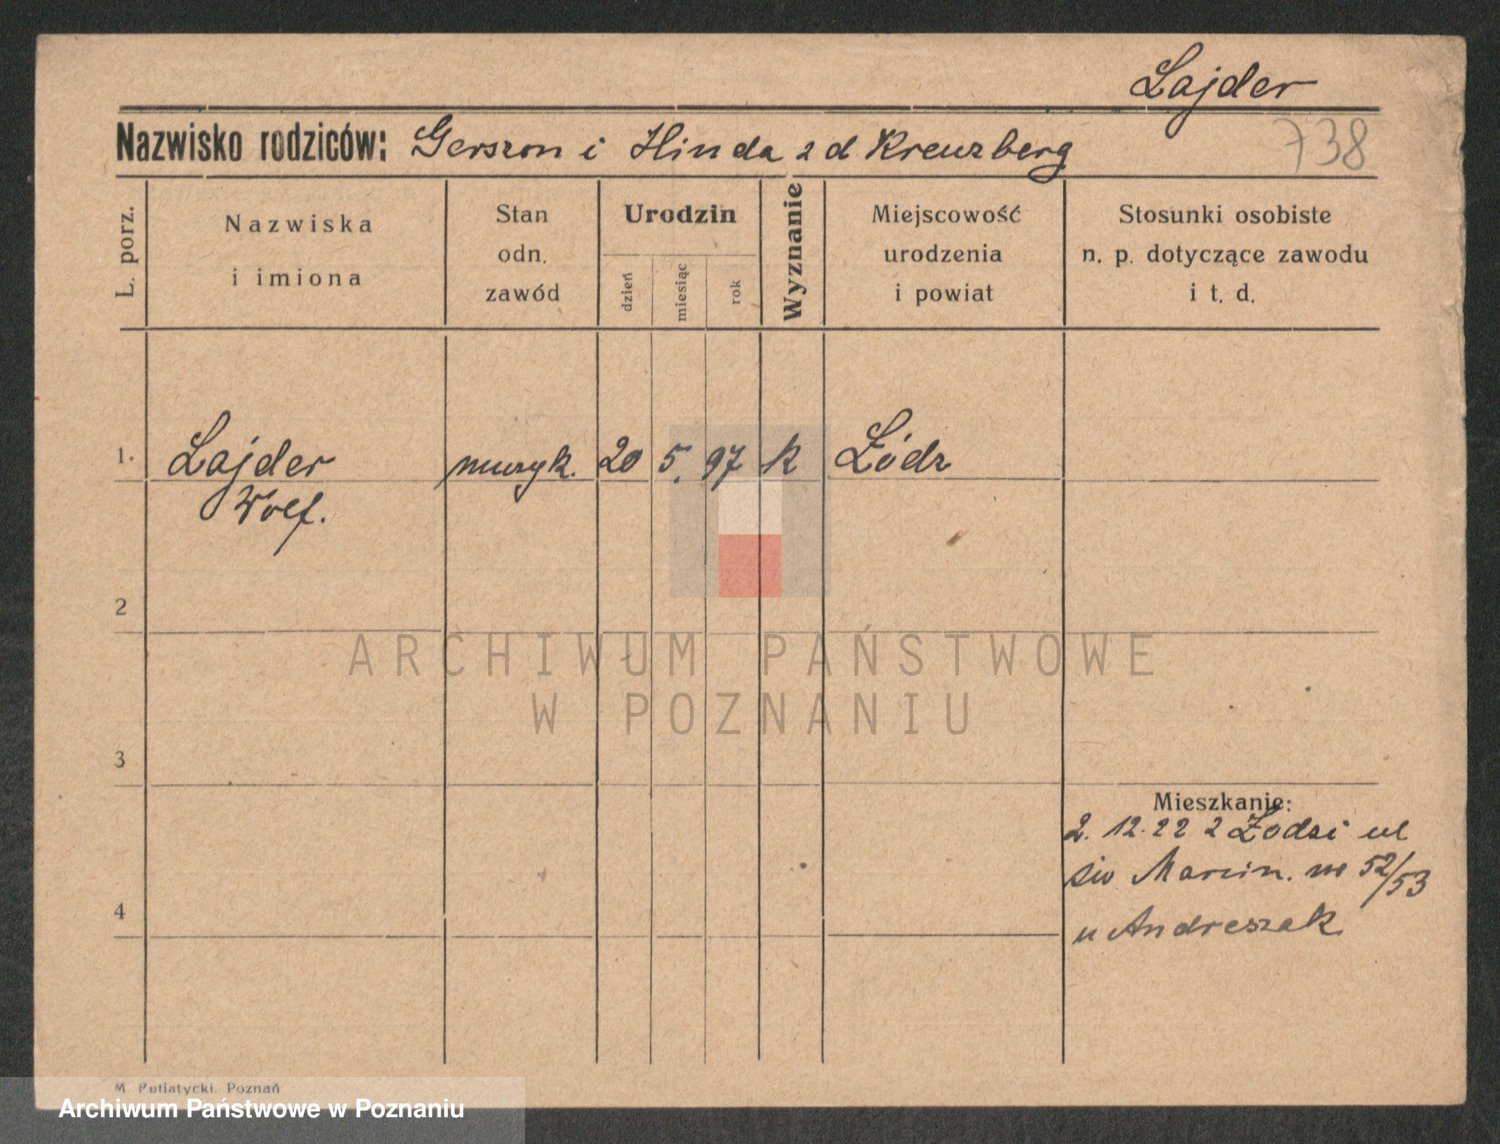 Lajder
Nazwisko rodziców: Gerszon i Hinda z d Kreuzberg
738
L. porz.
Nazwiska
i imiona
Stan
odn.
zawód
Urodzin
dzień
miesiąc
rok
Wyznanie
Miejscowość
urodzenia
i powiat
Stosunki osobiste
n. p. dotyczące zawodu
i t. d.
1. Lajder muzyk. 20 5. 97 k Łódz
Wolf.
2
3
Mieszkanie:
2. 12. 22 z Łodzi ul
św Marcin. m 52/53
4
u Andreszak
ARCHIWUM PAŃSTWOWE
W POZNANIU
M. Putiatycki. Poznań
Archiwum Państwowe w Poznaniu